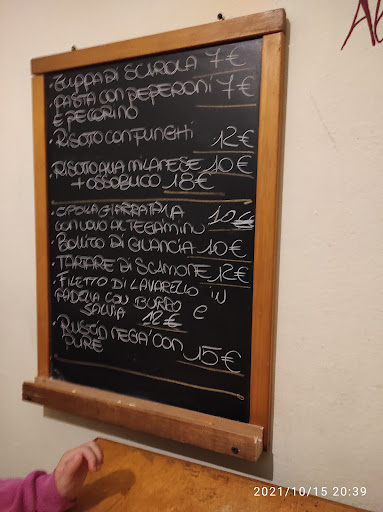 · ZUPPA DI SCAROLA 7€
· PASTA CON PEPERONI 7€
E PECORINO
· RISOTTO CON FUNGHI 12€
· RISOTTO ALLA MILANESE 10€
+ OSSOBUCO 18€
CON UOVO AL TEGAMINO 10€
· BOLLITO DI GUANCIA 10€
· TARTARE DI SALMONE 12€
· FILETTO DI LAVARELLO IN
PADELLA CON BURRO E
SALVIA 12€
· RUSTIN NEGA' CON 15€
PURE
2021/10/15 20:39